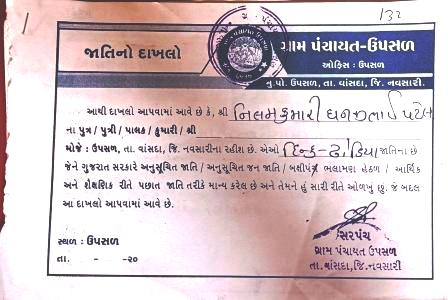 132
જાતિનો દાખલો
ગ્રામ પંચાયત-ઉપસળ
ઓફિસ : ઉપસળ
મુ.પો. ઉપસળ, તા. વાંસદા, જિ. નવસારી.
આથી દાખલો આપવામાં આવે છે કે, શ્રી નિલમકુમારી ધનજીભાઈ પટેલ
ના પુત્ર / પુત્રી / પાલક / કુમારી / શ્રી
મોજે : ઉપસળ, તા. વાંસદા, જિ. નવસારીના રહીશ છે. એઓ હિન્દુ-ઢોડિયા જાતિના છે
જેને ગુજરાત સરકારે અનુસૂચિત જાતિ / અનુસૂચિત જન જાતિ / બક્ષીપંચ ભલામણ હેઠળ / આર્થિક
અને શૈક્ષણિક રીતે પછાત જાતિ તરીકે માન્ય કરેલ છે અને તેમને હું સારી રીતે ઓળખું છુ. જે બદલ
આ દાખલો આપવામાં આવે છે.
સ્થળ : ઉપસળ
તા. - - ૨૦
સરપંચ
ગ્રામ પંચાયત ઉપસળ
તા.વાંસદા,જિ.નવસારી